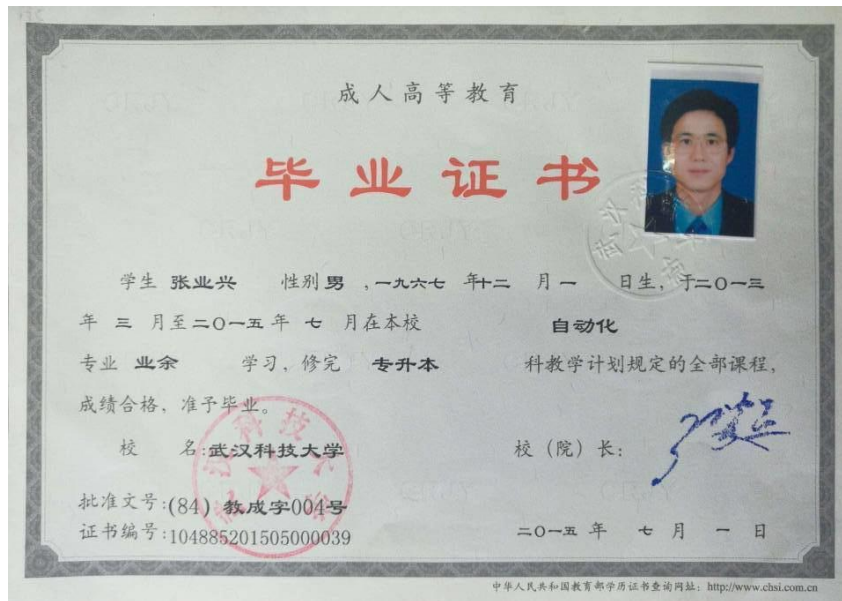 成人高等教育
毕业证书
学生 张业兴 性别 男 ，一九六七 年十二 月 一 日生，于二〇一三
年 三 月至二〇一五年 七 月在本校 自动化
专业 业余 学习，修完 专升本 科教学计划规定的全部课程，
成绩合格，准予毕业。
校 名:武汉科技大学 校（院）长：
批准文号:(84) 教成字004号
证书编号:104885201505000039 二〇一五 年 七 月 一 日
中华人民共和国教育部学历证书查询网址：http://www.chsi.com.cn